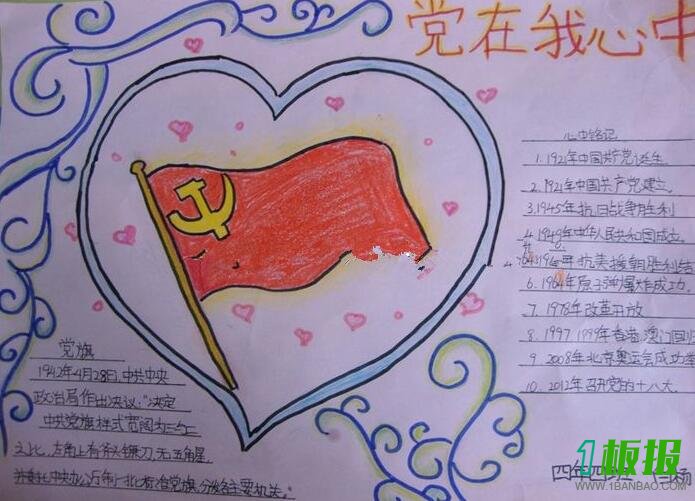 党在我心中
心中铭记
1. 1921年中国共产党诞生
2. 1921年中国共产党建立
3. 1945年抗日战争胜利
4. 1949年中华人民共和国成立
抗美援朝胜利结
6. 1964年原子弹爆炸成功
7. 1978年改革开放
8. 1997 1999年香港、澳门回归
9. 2008年北京奥运会成功
10. 2012年召开党的十八大
党旗
1942年4月28日,中共中央
政治局作出决议:"决定
中共党旗样式宽阔为三与二
之比,左角上有斧头镰刀,无五角星
并委托中央办公厅制一批标准党旗,分发各主要机关。"
四年四班
1板报
WWW.1BANBAO.COM